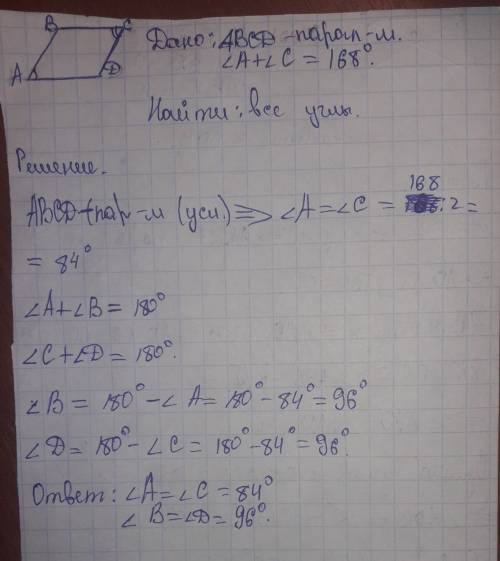 B C
A D
Дано: ABCD - парал-м.
∠A+∠C = 168°.
Найти: все углы.
Решение.
ABCD - пар-м (усл.) ⇒ ∠A=∠C = 168:2 =
= 84°
∠A+∠B = 180°
∠C+∠D = 180°.
∠B = 180°-∠A = 180°-84° = 96°
∠D = 180°-∠C = 180°-84° = 96°.
Ответ: ∠A=∠C = 84°
∠B=∠D = 96°.